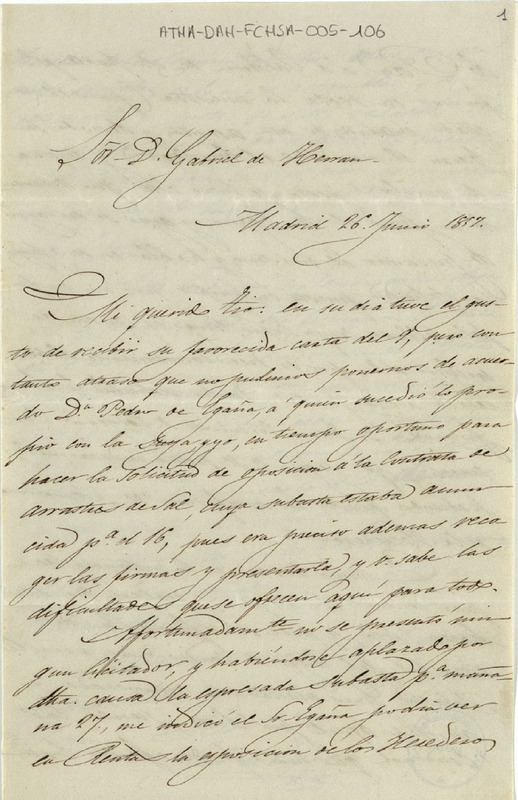 1
ATHA-DAH-FCHSA-005-106
Sor. Dn. Gabriel de Herran.
Madrid 26. Junio 1857.
Mi querido Tio: en su dia tuve el gus-
to de recibir su favorecida carta del 9, pero con
tanto atraso que no pudimos ponernos de acuer-
do Dn. Pedro de Egaña, á quien sucedió lo pro-
pio con la suya, y yo, en tiempo oportuno para
hacer la Solicitud de oposicion á la Contrata de
arrastres de Sal, cuya subasta estaba anun-
ciada pa. el 16, pues era preciso ademas reco
ger las firmas y presentarla, y v. sabe las
dificultades que se ofrecen aquí para todo.
Affortunadamte. no se presentó nin
gun licitador, y habiéndose aplazado por
dha. causa la espresada subasta pa. maña
na 27, me indicó el Sr. Egaña podria ver
en Rentas la esposicion de los Herederos